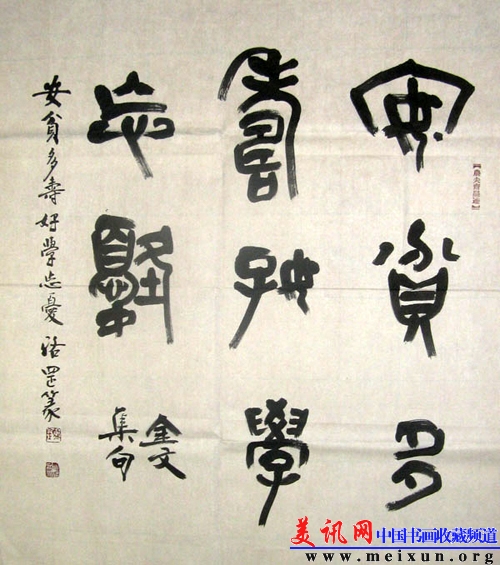 安貧多
壽好學
忘憂
金文
集句
安貧多壽好學忘憂 活罡篆
美讯网 中国书画收藏频道
www.meixun.org